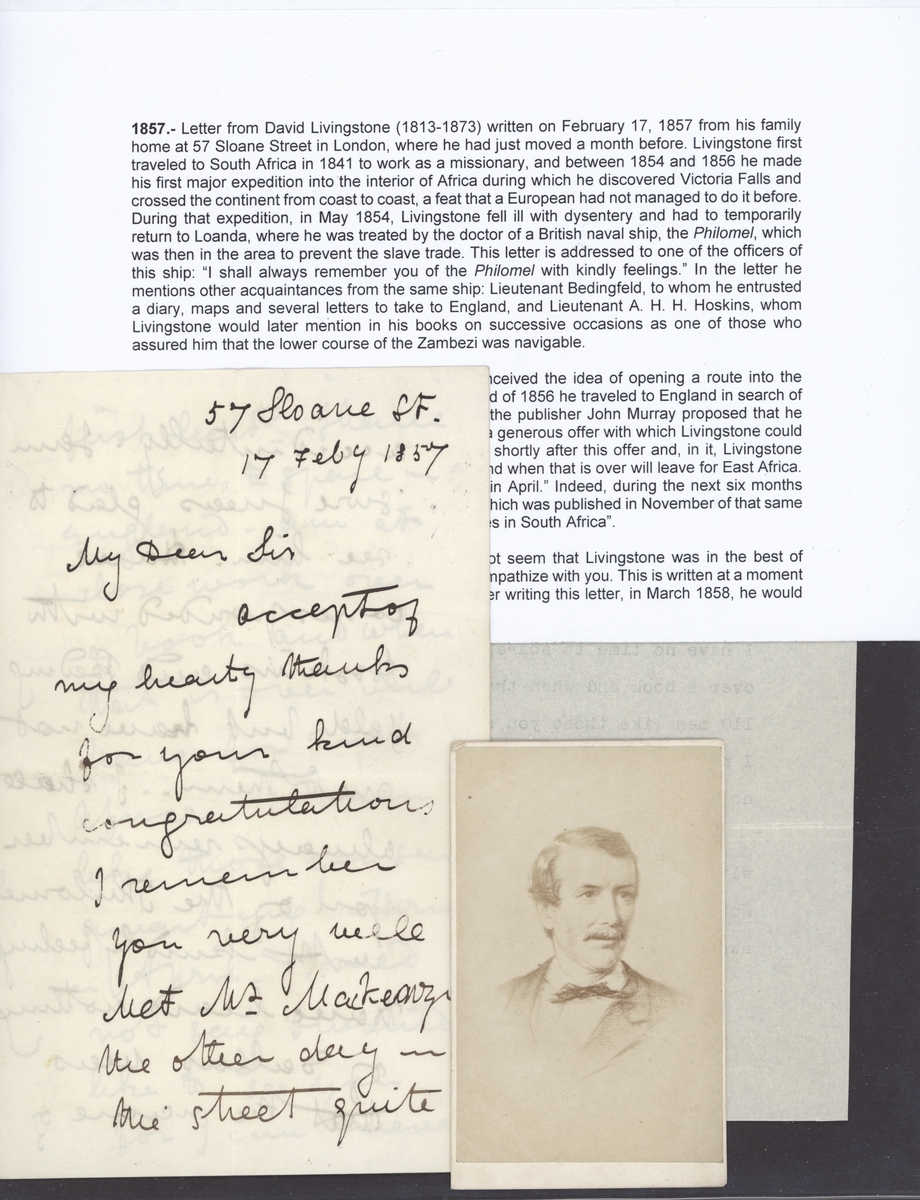 1857.- Letter from David Livingstone (1813-1873) written on February 17, 1857 from his family
home at 57 Sloane Street in London, where he had just moved a month before. Livingstone first
traveled to South Africa in 1841 to work as a missionary, and between 1854 and 1856 he made
his first major expedition into the interior of Africa during which he discovered Victoria Falls and
crossed the continent from coast to coast, a feat that a European had not managed to do it before.
During that expedition, in May 1854, Livingstone fell ill with dysentery and had to temporarily
return to Loanda, where he was treated by the doctor of a British naval ship, the Philomel, which
was then in the area to prevent the slave trade. This letter is addressed to one of the officers of
this ship: “I shall always remember you of the Philomel with kindly feelings.” In the letter he
mentions other acquaintances from the same ship: Lieutenant Bedingfeld, to whom he entrusted
a diary, maps and several letters to take to England, and Lieutenant A. H. H. Hoskins, whom
Livingstone would later mention in his books on successive occasions as one of those who
assured him that the lower course of the Zambezi was navigable.
nceived the idea of opening a route into the
d of 1856 he traveled to England in search of
the publisher John Murray proposed that he
generous offer with which Livingstone could
shortly after this offer and, in it, Livingstone
nd when that is over will leave for East Africa.
in April.” Indeed, during the next six months
hich was published in November of that same
s in South Africa”.
ot seem that Livingstone was in the best of
mpathize with you. This is written at a moment
er writing this letter, in March 1858, he would
57 Sloane St.
17 Feby 1857
My Dear Sir
accept of
my hearty thanks
for your kind
congratulations
I remember
you very well
Met Mr Mackenzi
the other day in
the street quite
I have no time to spare
over a book and when tha
110 men like those you